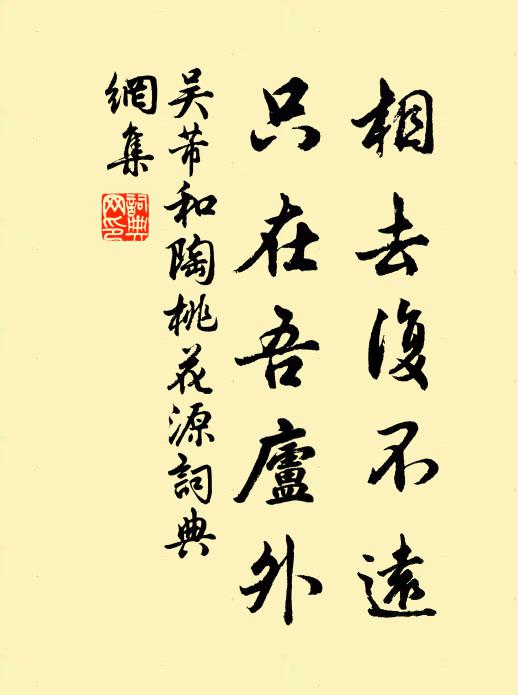 相去復不遠
只在吾廬外
吴芾和陶桃花源詞典
網集
詞典网印